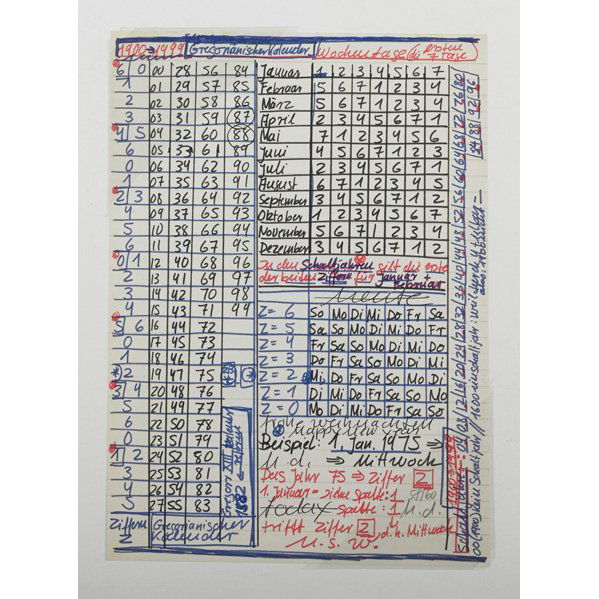 1900 → 1999 Gregorianischer Kalender Wochentage (die ersten 7 Tage)
6 0 00 28 56 84
1 01 29 57 85
2 02 30 58 86
3 03 31 59 87
4 5 04 32 60 88
6 05 33 61 89
0 06 34 62 90
1 07 35 63 91
2 3 08 36 64 92
4 09 37 65 93
5 10 38 66 94
6 11 39 67 95
0 1 12 40 68 96
2 13 41 69 97
3 14 42 70 98
4 15 43 71 99
5 6 16 44 72
0 17 45 73
1 18 46 74
*2 19 47 75
3 4 20 48 76
5 21 49 77
6 22 50 78
0 23 51 79
1 2 24 52 80
3 25 53 81
4 26 54 82
5 27 55 83
Ziffern Gregorianischer
Z Kalender
Januar 1 2 3 4 5 6 7
Februar 5 6 7 1 2 3 4
März 5 6 7 1 2 3 4
April 2 3 4 5 6 7 1
Mai 7 1 2 3 4 5 6
Juni 4 5 6 7 1 2 3
Juli 2 3 4 5 6 7 1
August 6 7 1 2 3 4 5
September 3 4 5 6 7 1 2
Oktober 1 2 3 4 5 6 7
November 5 6 7 1 2 3 4
Dezember 3 4 5 6 7 1 2
In den Schaltjahren gilt die erste
der beiden Ziffern für Januar +
Februar
heute
Z = 6 So Mo Di Mi Do Fr Sa
Z = 5 Sa So Mo Di Mi Do Fr
Z = 4 Fr Sa So Mo Di Mi Do
Z = 3 Do Fr Sa So Mo Di Mi
Z = 2 Mi Do Fr Sa So Mo Di
Z = 1 Di Mi Do Fr Sa So Mo
Z = 0 Mo Di Mi Do Fr Sa So
frohe weihnachten
happy new year
Beispiel: 1. Jan. 1975 ⇒
u. d. ⇒ Mittwoch
Das Jahr 75 ⇒ Ziffer 2
1. Januar = siehe Spalte: 1
today Spalte: 1 u. d.
trifft Ziffer 2, d. h. Mittwoch
u. s. w.
Gregor XIII Januar
1582
1900 → 1999
Schaltjahre 04 08 12 16 20 24 28 32 36 40 44 48 52 56 60 64 68 72 76 80
84 88 92 96
00 (1900) kein Schaltjahr // 1600 ein Schaltjahr: weil durch 4 teilbar